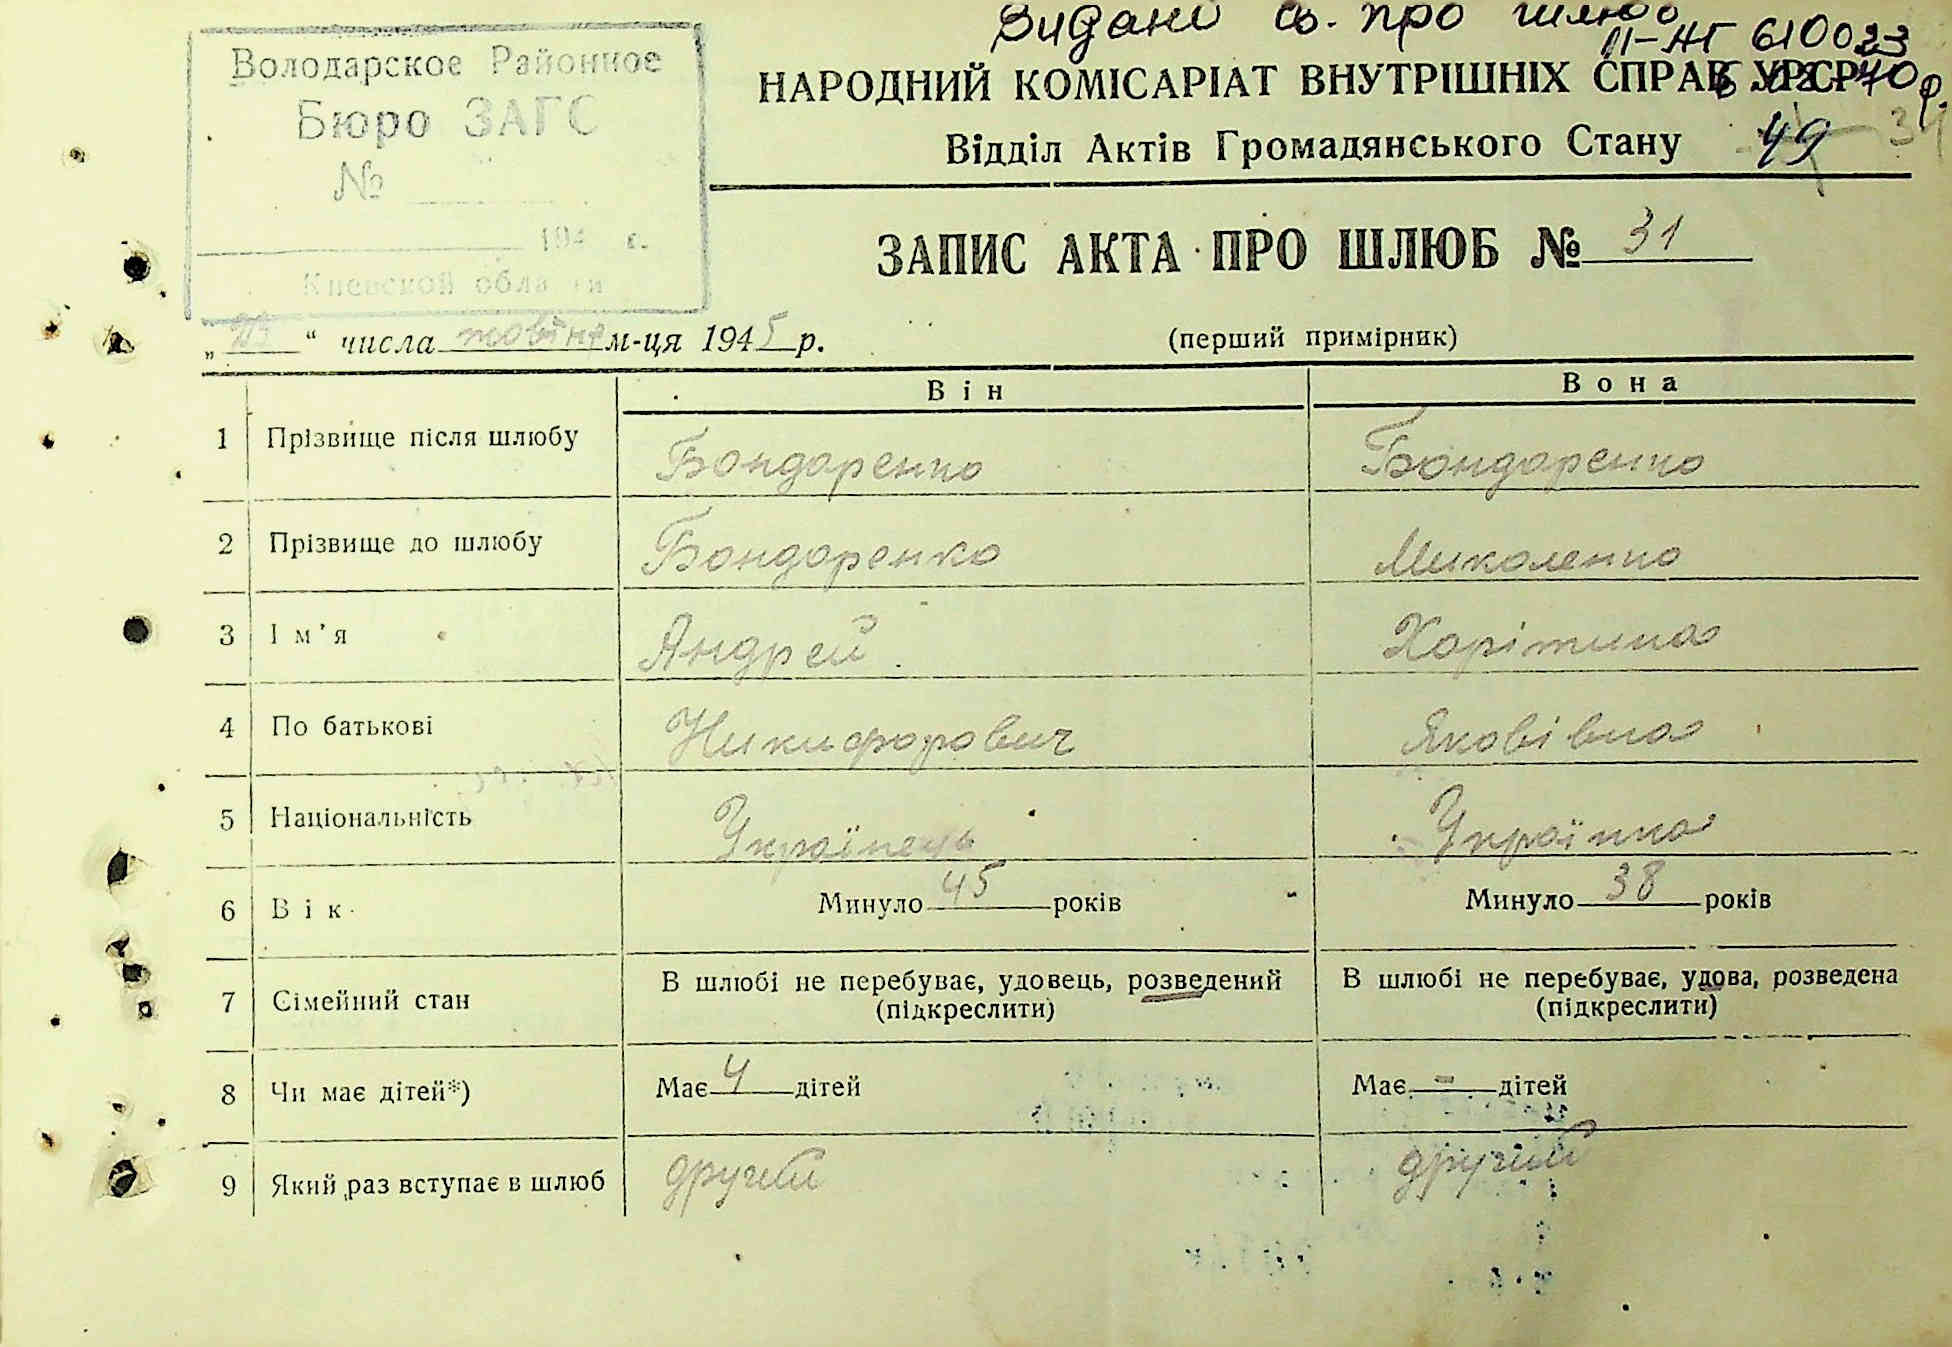 Видані св. про шлюб
II-ЖГ 610023
Володарское Районное
Бюро ЗАГС
№
194 г.
Киевской области
НАРОДНИЙ КОМІСАРІАТ ВНУТРІШНІХ СПРАВ УРСР
Відділ Актів Громадянського Стану 49
ЗАПИС АКТА ПРО ШЛЮБ № 31
„ “ числа жовтня м-ця 1945 р. (перший примірник)
Він Вона
1 Прізвище після шлюбу Бондаренко Бондаренко
2 Прізвище до шлюбу Бондаренко Миколенко
3 Ім'я Андрей Харітина
4 По батькові Никифорович Яковівна
5 Національність Українець Українка
6 Вік Минуло 45 років Минуло 38 років
7 Сімейний стан В шлюбі не перебуває, удовець, розведений (підкреслити) В шлюбі не перебуває, удова, розведена (підкреслити)
8 Чи має дітей*) Має 4 дітей Має - дітей
9 Який раз вступає в шлюб другий другий